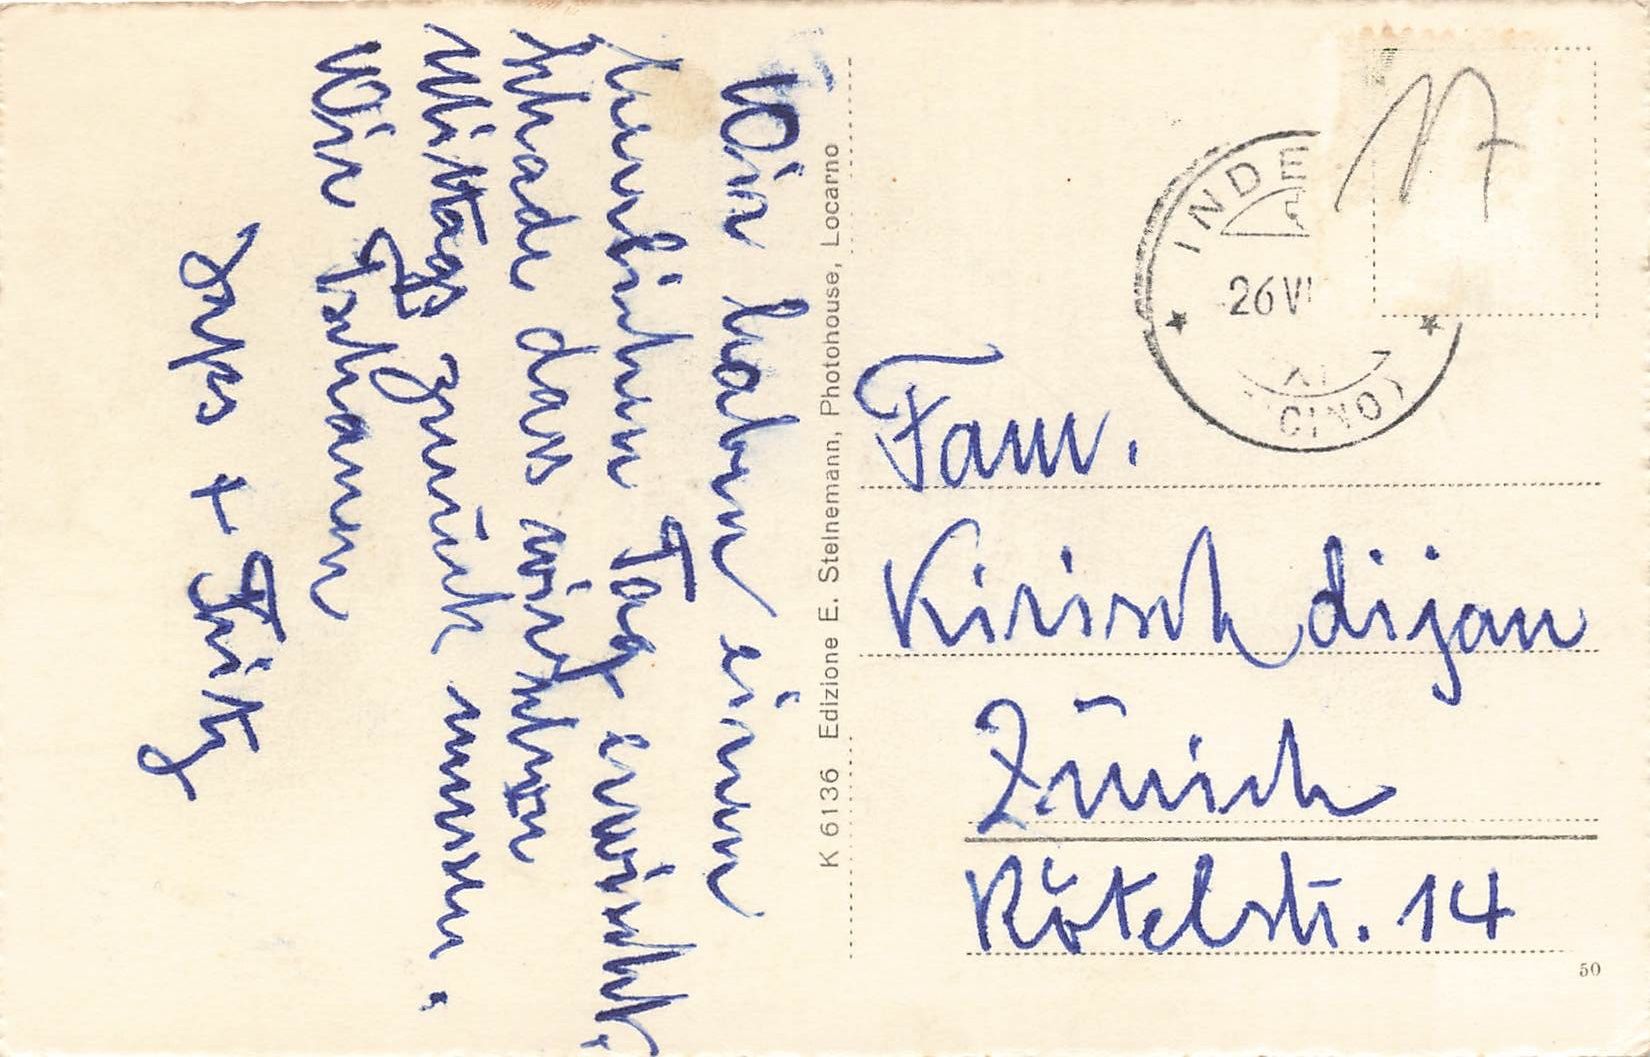 Wir haben einen
herrlichen Tag erwischt.
schade dass wir schon
Mittags zurück müssen.
Wir Tschauen
+ Fritz
K 6136 Edizione E. Steinemann, Photohouse, Locarno
INDE
26 VI
XI
CINO)
17
Fam.
Kirischdijan
Zürich
Rötelstr. 14
50